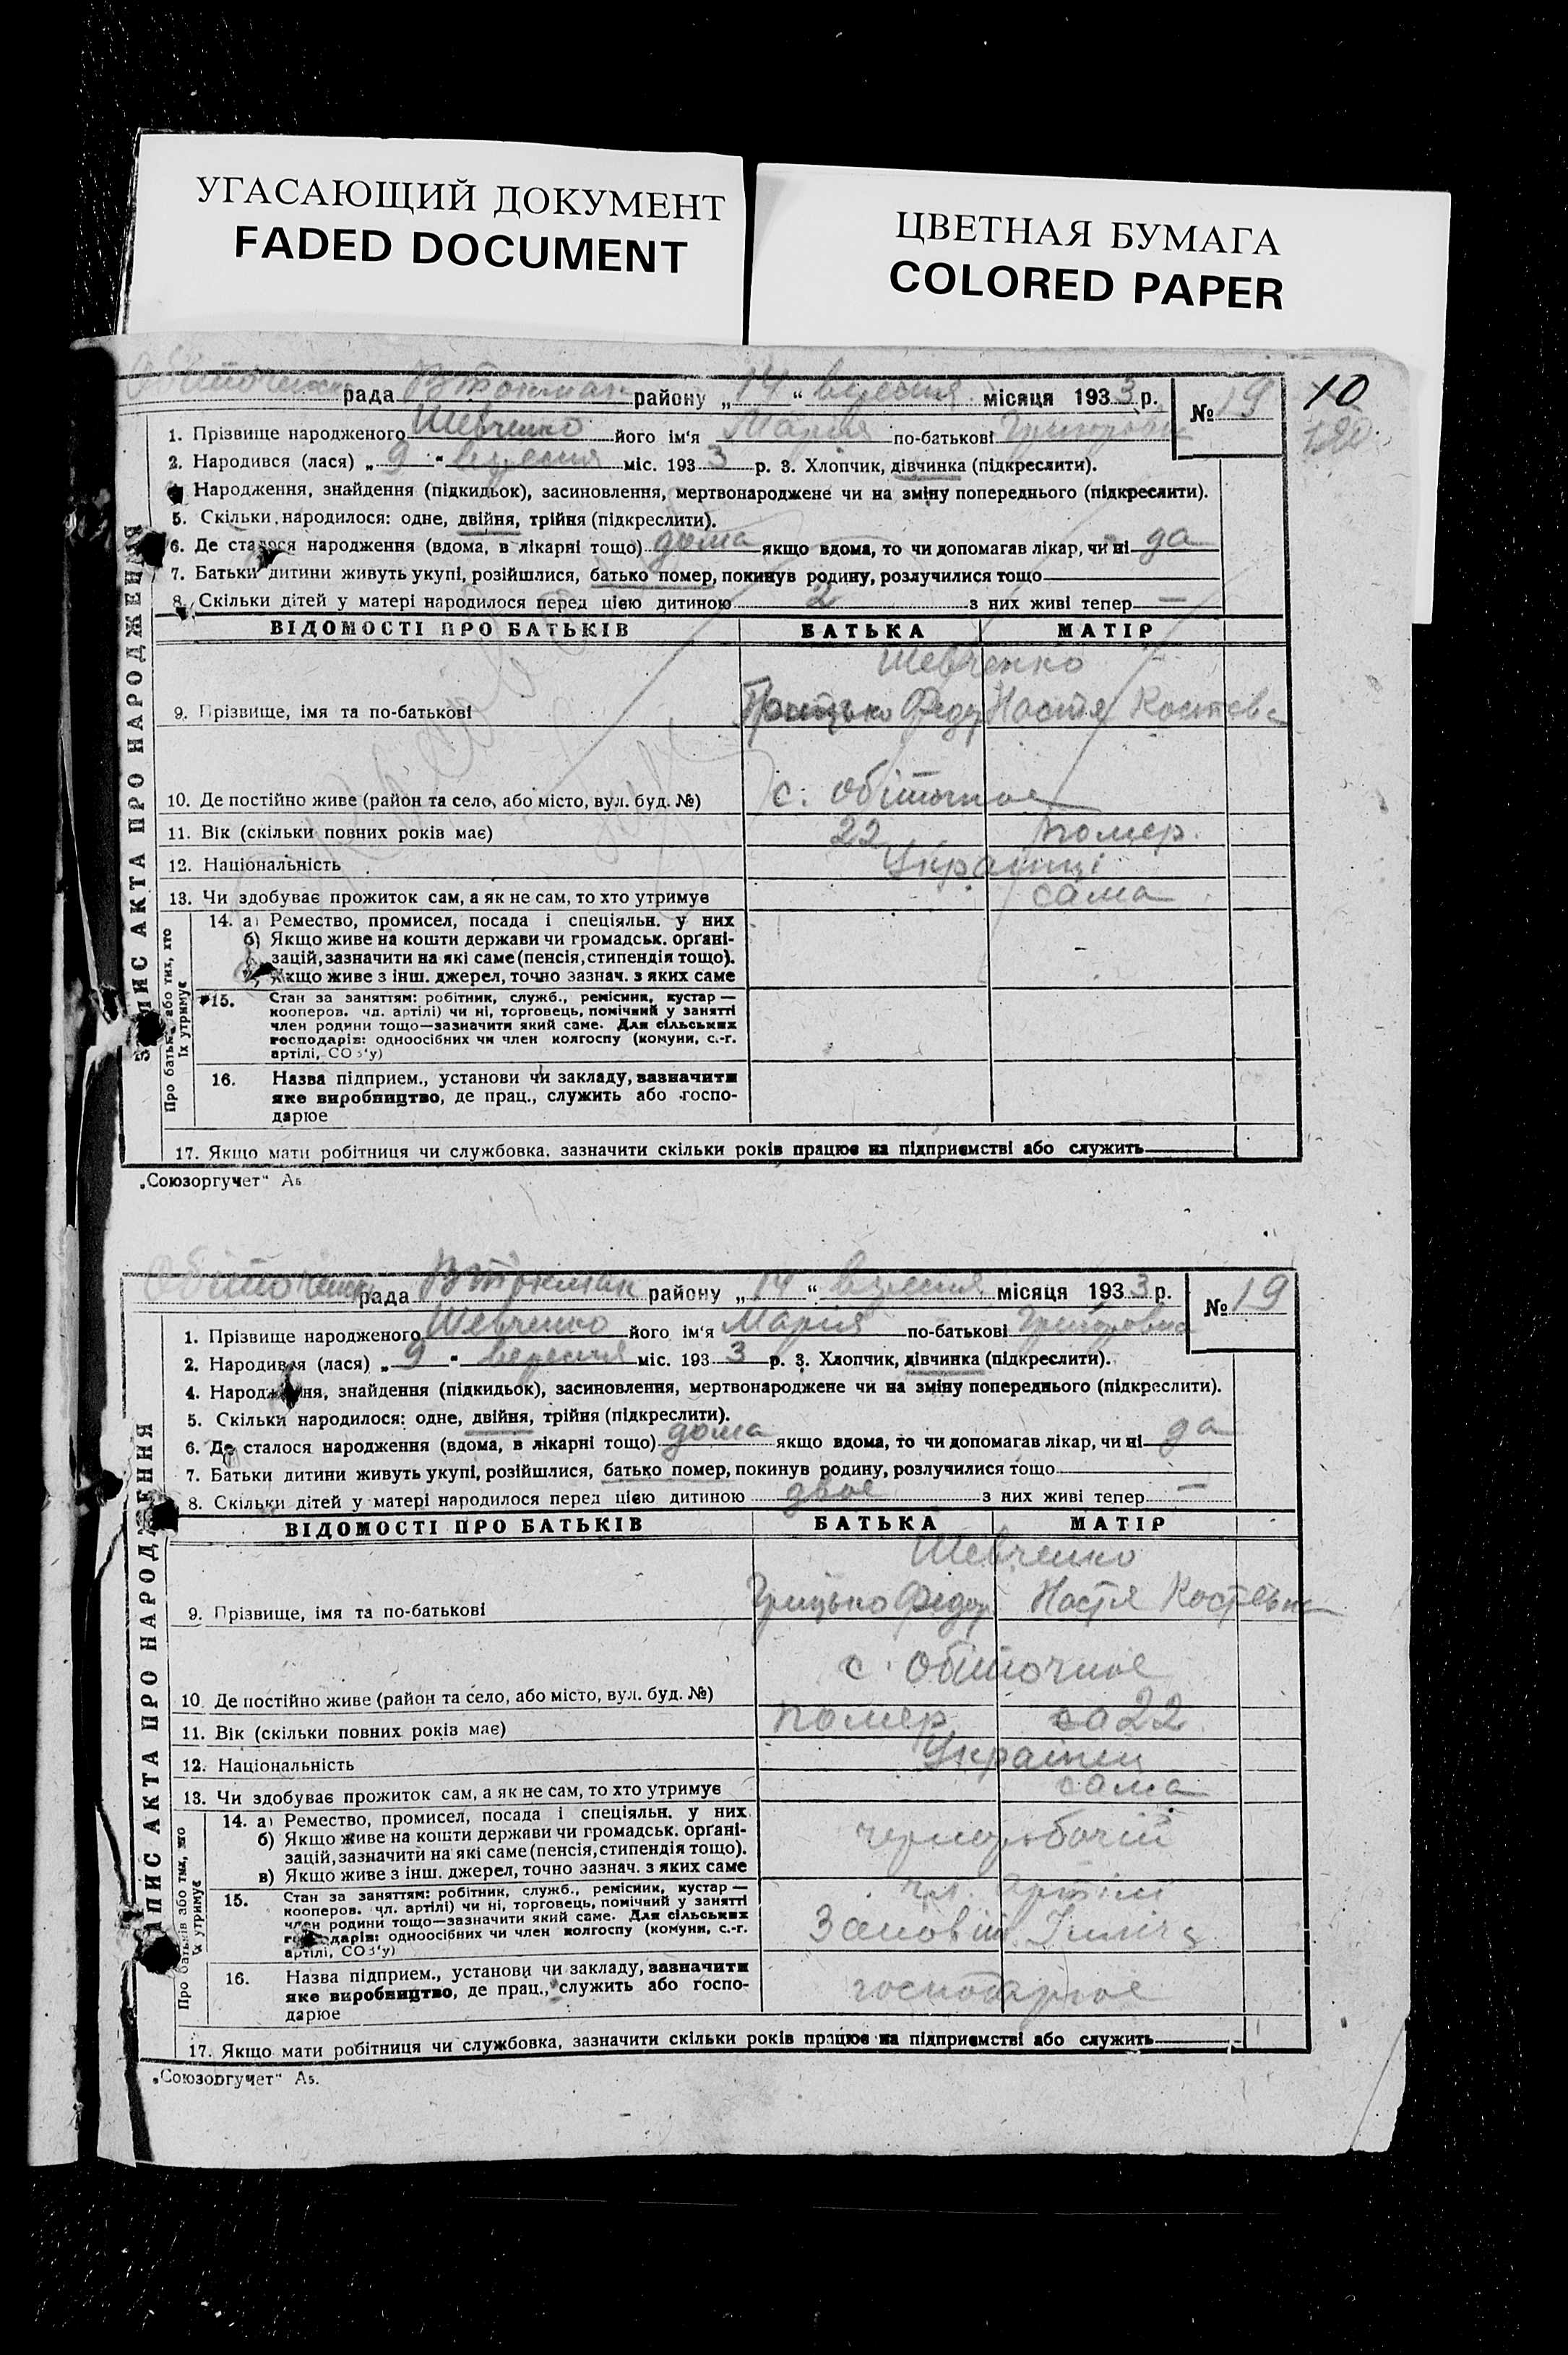 УГАСАЮЩИЙ ДОКУМЕНТ
FADED DOCUMENT
ЦВЕТНАЯ БУМАГА
COLORED PAPER
рада В Токмак району „14“ вересня місяця 1933 р. № 19 10
1. Прізвище народженого Шевченко його ім'я Марія по-батькові
2. Народився (лася) „9“ вересня міс. 1933 р. 3. Хлопчик, дівчинка (підкреслити).
Народження, знайдення (підкидьок), засиновлення, мертвонароджене чи на зміну попереднього (підкреслити).
5. Скільки народилося: одне, двійня, трійня (підкреслити).
6. Де сталося народження (вдома, в лікарні тощо) дома якщо вдома, то чи допомагав лікар, чи ні да
7. Батьки дитини живуть укупі, розійшлися, батько помер, покинув родину, розлучилися тощо
8. Скільки дітей у матері народилося перед цією дитиною 2 з них живі тепер —
ЗАПИС АКТА ПРО НАРОДЖЕННЯ
ВІДОМОСТІ ПРО БАТЬКІВ БАТЬКА МАТІР
Шевченко
9. Прізвище, імя та по-батькові Грицько Федор Настя
10. Де постійно живе (район та село, або місто, вул. буд. №) с. Обіточное
11. Вік (скільки повних років має) 22 помер.
12. Національність Українці
13. Чи здобуває прожиток сам, а як не сам, то хто утримує сама
Про батьків або тих, хто їх утримує
14. а) Ремество, промисел, посада і спеціяльн. у них
б) Якщо живе на кошти держави чи громадськ. орґані-
зацій, зазначити на які саме (пенсія, стипендія тощо).
Якщо живе з інш. джерел, точно зазнач. з яких саме
15. Стан за заняттям: робітник, служб., ремісник, кустар —
кооперов. чл. артілі) чи ні, торговець, помічний у занятті
член родини тощо—зазначити який саме. Для сільських
господарів: одноосібних чи член колгоспу (комуни, с.-г.
артілі, СОЗ'у)
16. Назва підприєм., установи чи закладу, зазначити
яке виробництво, де прац., служить або госпо-
дарює
17. Якщо мати робітниця чи службовка, зазначити скільки років працює на підприємстві або служить
„Союзоргучет“ А5
рада В Токмак району „14“ вересня місяця 1933 р. № 19
1. Прізвище народженого Шевченко його ім'я Марія по-батькові Григоровна
2. Народився (лася) „9“ вересня міс. 1933 р. 3. Хлопчик, дівчинка (підкреслити).
4. Народження, знайдення (підкидьок), засиновлення, мертвонароджене чи на зміну попереднього (підкреслити).
5. Скільки народилося: одне, двійня, трійня (підкреслити).
6. Де сталося народження (вдома, в лікарні тощо) дома якщо вдома, то чи допомагав лікар, чи ні да
7. Батьки дитини живуть укупі, розійшлися, батько помер, покинув родину, розлучилися тощо
8. Скільки дітей у матері народилося перед цією дитиною двое з них живі тепер —
ЗАПИС АКТА ПРО НАРОДЖЕННЯ
ВІДОМОСТІ ПРО БАТЬКІВ БАТЬКА МАТІР
Шевченко
9. Прізвище, імя та по-батькові Грицько Федор Настя Костевна
с. Обіточное
10. Де постійно живе (район та село, або місто, вул. буд. №)
11. Вік (скільки повних років має) помер 22
12. Національність
13. Чи здобуває прожиток сам, а як не сам, то хто утримує сама
Про батьків або тих, що їх утримує
14. а) Ремество, промисел, посада і спеціяльн. у них
б) Якщо живе на кошти держави чи громадськ. орґані-
зацій, зазначити на які саме (пенсія, стипендія тощо).
в) Якщо живе з інш. джерел, точно зазнач. з яких саме
15. Стан за заняттям: робітник, служб., ремісник, кустар — чл. артілі
кооперов. чл. артілі) чи ні, торговець, помічний у занятті
член родини тощо—зазначити який саме. Для сільських
господарів: одноосібних чи член колгоспу (комуни, с.-г.
артілі, СОЗ'у)
16. Назва підприєм., установи чи закладу, зазначити господарює
яке виробництво, де прац., служить або госпо-
дарює
17. Якщо мати робітниця чи службовка, зазначити скільки років працює на підприємстві або служить
„Союзоргучет“ А5.